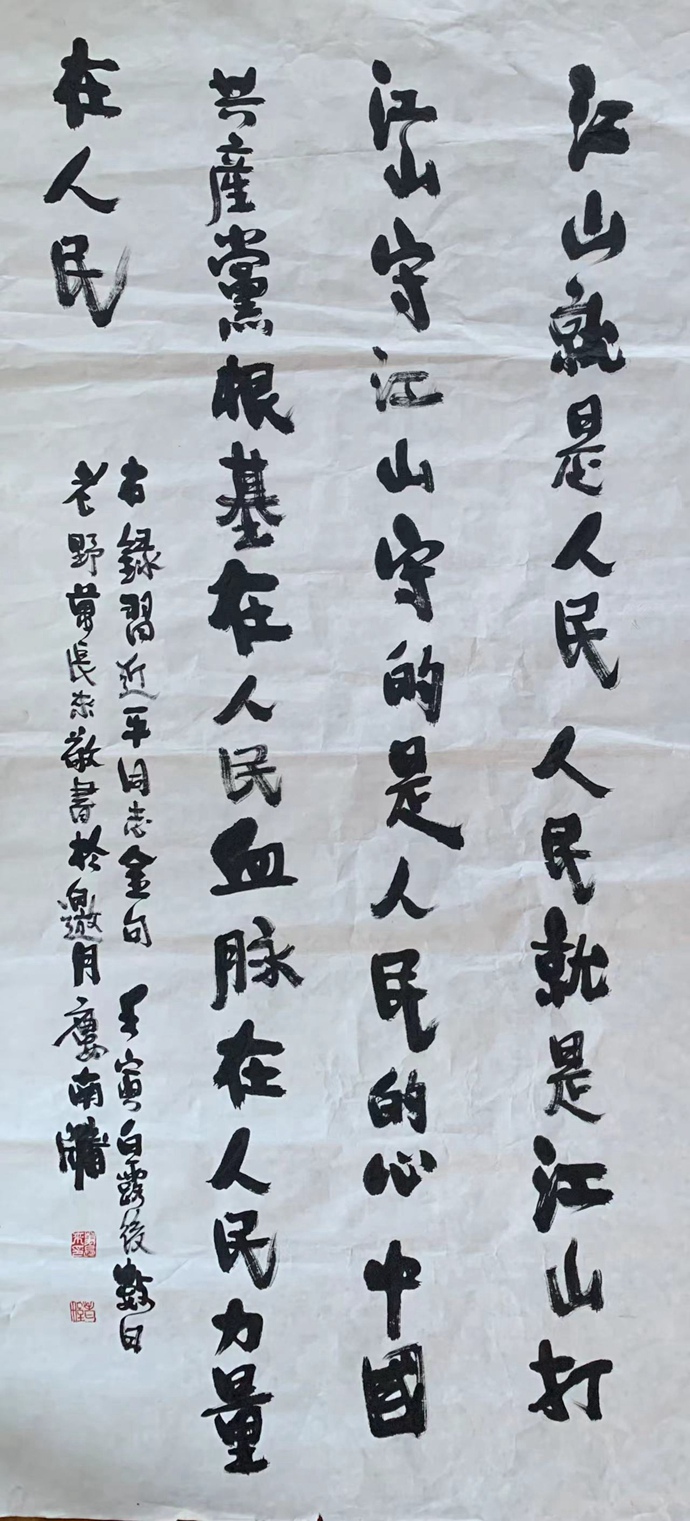 江山就是人民人民就是江山打
江山守江山守的是人民的心中國
共產黨根基在人民血脉在人民力量
在人民
右録習近平同志金句 壬寅白露後數日
老野黃長忠敬書於邀月廔南牖